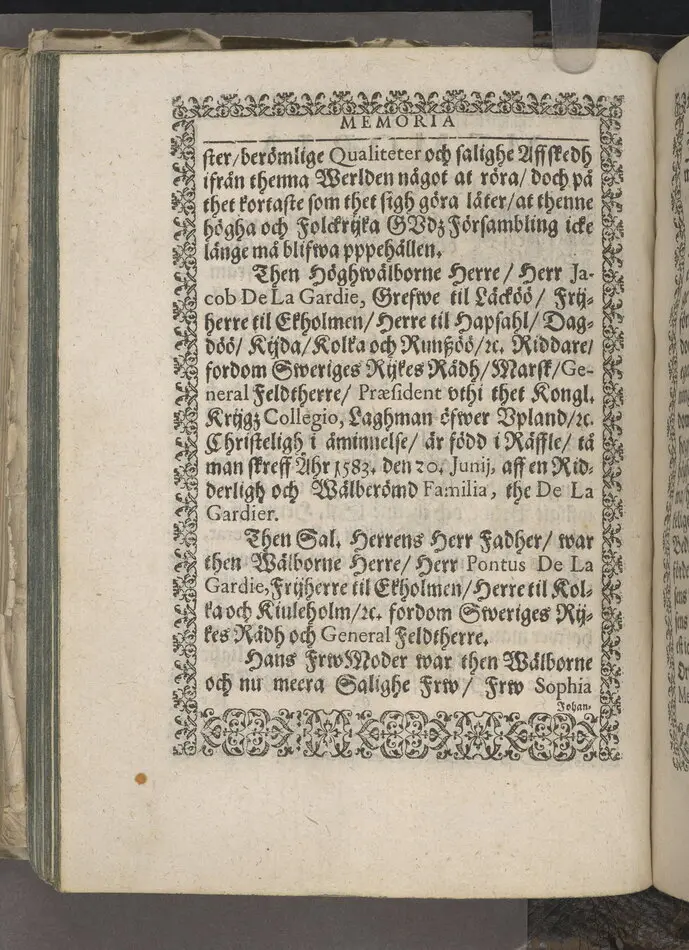 MEMORIA
ster/berömlige Qualiteter och salighe Affskedh
ifrån thenna Werlden något at röra/ doch på
thet kortaste som thet sigh göra låter/at thenne
högha och Folckrijka GVdz Försambling icke
länge må blifwa pppehållen.
Then Höghwälborne Herre/ Herr Ja-
cob De La Gardie, Grefwe til Läcköö/ Frij-
herre til Ekholmen/Herre til Hapsahl/Dag-
döö/ Kijda/Kolka och Runßöö/ꝛc. Riddare/
fordom Sweriges Rijkes Rådh/Marsk/Ge-
neral Feldtherre/ Præsident vthi thet Kongl.
Krijgz Collegio, Laghman öfwer Vpland/ꝛc.
Christeligh i åminnelse/ är född i Räffle/ tå
man skreff Åhr 1583. den 20. Junij, aff en Rid-
derligh och Wälberömd Familia, the De La
Gardier.
Then Sal. Herrens Herr Fadher/ war
then Wälborne Herre/ Herr Pontus De La
Gardie, Frijherre til Ekholmen/Herre til Kol-
ka och Kiuleholm/ꝛc. fordom Sweriges Rij-
kes Rådh och General Feldtherre.
Hans Frw Moder war then Wälborne
och nu meera Salighe Frw/ Frw Sophia
Johan-